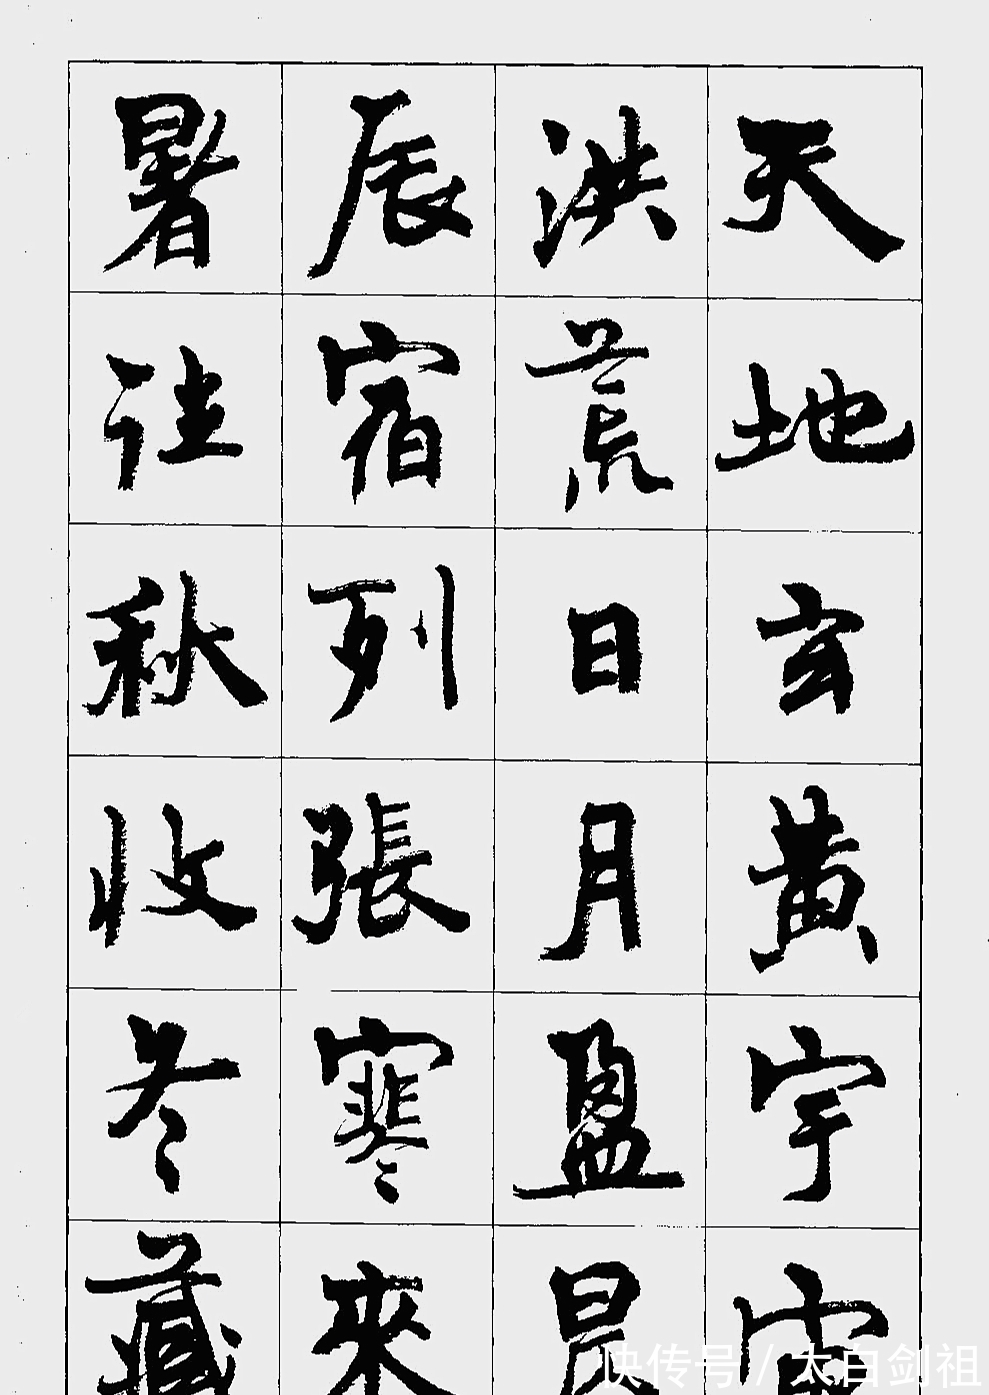 天地玄黃宇宙
洪荒日月盈昃
辰宿列張寒來
暑往秋收冬藏
快传号 / 太白剑祖